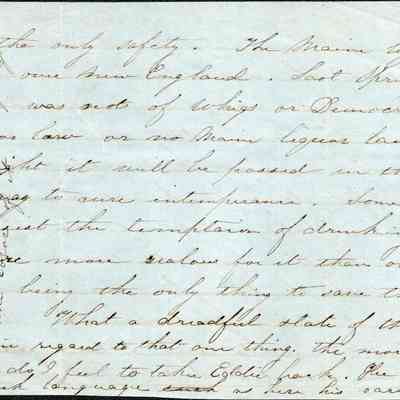 the only safety. The Maine
over New England. Last Spr
was not of Whigs or Democ
law or no Main liquor law
ght it will be passed in th
to cure intemperance. Some
ist the temptation of drinki
more zealous for it than
being the only thing to save
What a dreadful state of th
in regard to that one thing, the mor
do I feel to take Eddie back. He
language such as here his care